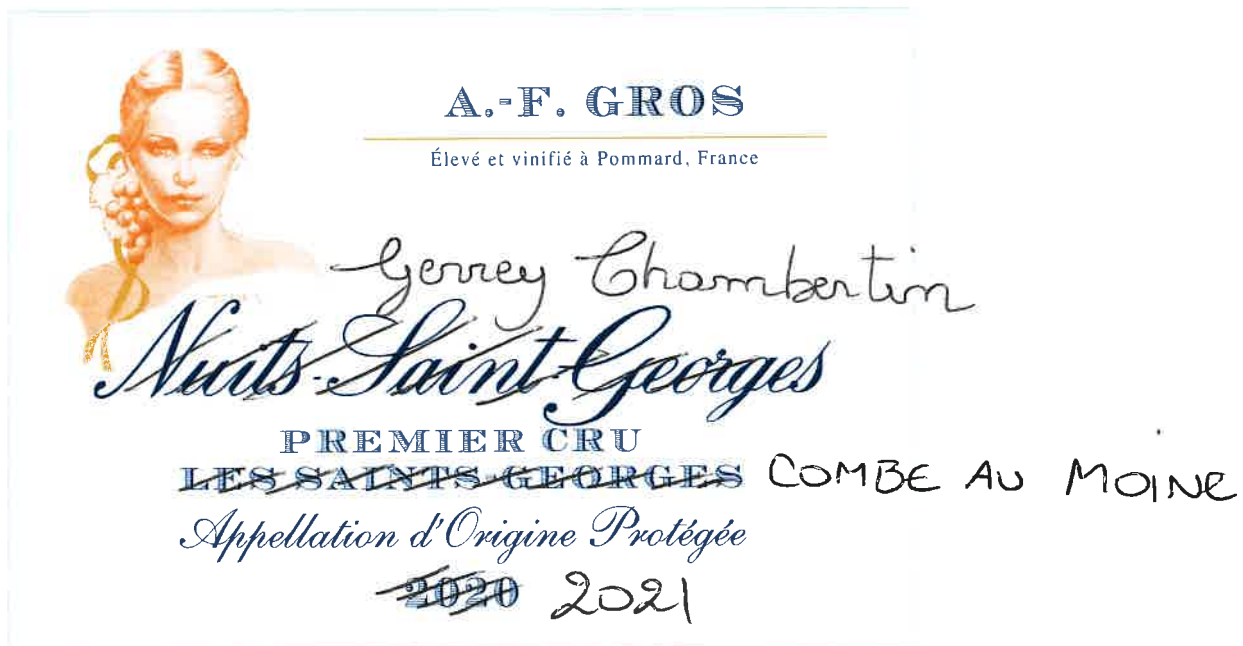 A.-F. GROS
Élevé et vinifié à Pommard, France
Gevrey Chambertin
Nuits-Saint-Georges
PREMIER CRU
LES SAINTS-GEORGES COMBE AU MOINE
Appellation d'Origine Protégée
2020 2021